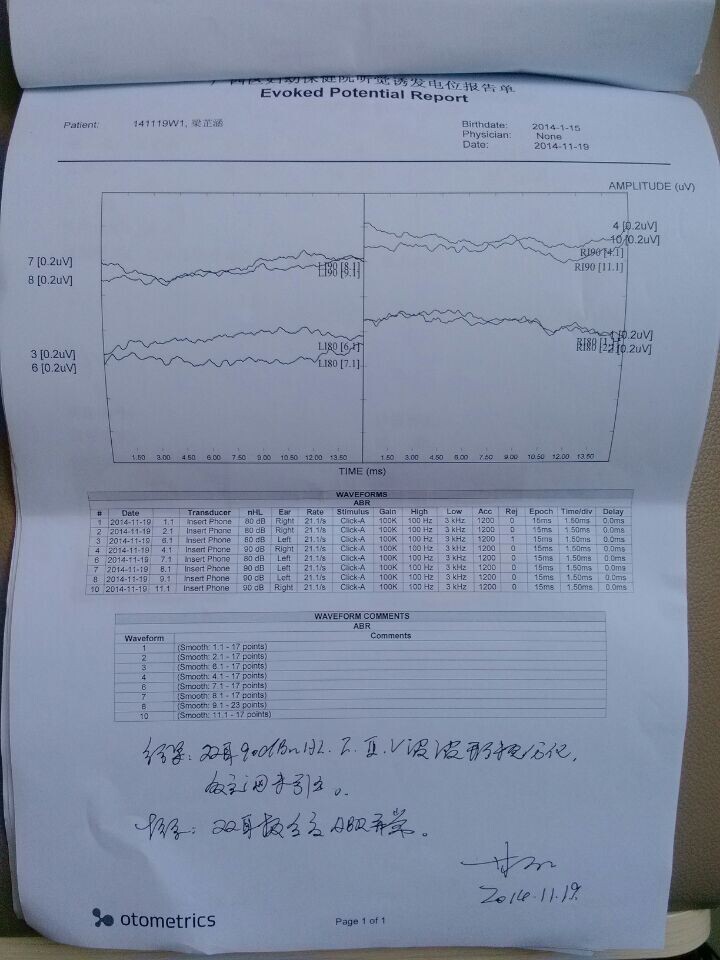 区妇幼保健院听觉诱发电位报告单
Evoked Potential Report
Patient: 141119W1, 梁芷涵
Birthdate: 2014-1-15
Physician: None
Date: 2014-11-19
AMPLITUDE (uV)
4 [0.2uV]
10 [0.2uV]
RI90 [4.1]
RI90 [11.1]
7 [0.2uV]
8 [0.2uV]
LI90 [8.1]
LI90 [9.1]
3 [0.2uV]
6 [0.2uV]
LI80 [6.1]
LI80 [7.1]
1 [0.2uV]
RI80 [1.1]
RI80 [2.1]
2 [0.2uV]
1.50 3.00 4.50 6.00 7.50 9.00 10.50 12.00 13.50 1.50 3.00 4.50 6.00 7.50 9.00 10.50 12.00 13.50
TIME (ms)
WAVEFORMS
ABR
# Date Transducer nHL Ear Rate Stimulus Gain High Low Acc Rej Epoch Time/div Delay
1 2014-11-19 1.1 Insert Phone 80 dB Right 21.1/s Click-A 100K 100 Hz 3 kHz 1200 0 15ms 1.50ms 0.0ms
2 2014-11-19 2.1 Insert Phone 80 dB Right 21.1/s Click-A 100K 100 Hz 3 kHz 1200 0 15ms 1.50ms 0.0ms
3 2014-11-19 6.1 Insert Phone 80 dB Left 21.1/s Click-A 100K 100 Hz 3 kHz 1200 1 15ms 1.50ms 0.0ms
4 2014-11-19 4.1 Insert Phone 90 dB Right 21.1/s Click-A 100K 100 Hz 3 kHz 1200 0 15ms 1.50ms 0.0ms
6 2014-11-19 7.1 Insert Phone 80 dB Left 21.1/s Click-A 100K 100 Hz 3 kHz 1200 0 15ms 1.50ms 0.0ms
7 2014-11-19 8.1 Insert Phone 90 dB Left 21.1/s Click-A 100K 100 Hz 3 kHz 1200 0 15ms 1.50ms 0.0ms
8 2014-11-19 9.1 Insert Phone 90 dB Left 21.1/s Click-A 100K 100 Hz 3 kHz 1200 0 15ms 1.50ms 0.0ms
10 2014-11-19 11.1 Insert Phone 90 dB Right 21.1/s Click-A 100K 100 Hz 3 kHz 1200 0 15ms 1.50ms 0.0ms
WAVEFORM COMMENTS
ABR
Waveform Comments
1 (Smooth: 1.1 - 17 points)
2 (Smooth: 2.1 - 17 points)
3 (Smooth: 6.1 - 17 points)
4 (Smooth: 4.1 - 17 points)
6 (Smooth: 7.1 - 17 points)
7 (Smooth: 8.1 - 17 points)
8 (Smooth: 9.1 - 23 points)
10 (Smooth: 11.1 - 17 points)
结果: 双耳90dBnHL I. III. V 波波形
未引出。
双耳 ABR异常。
2014.11.19.
otometrics
Page 1 of 1